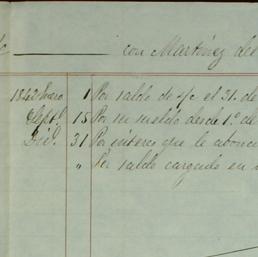 con Martinez del
1842 Enero 1 Por saldo de s/c el 31. de
Sept. 15 Por su sueldo desde 1.º de
Dic. 31 Por interes que le abona
" Por saldo cargado en